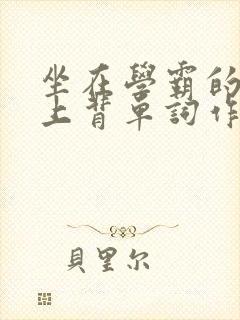 坐在學霸的
上背單詞作
貝里尔